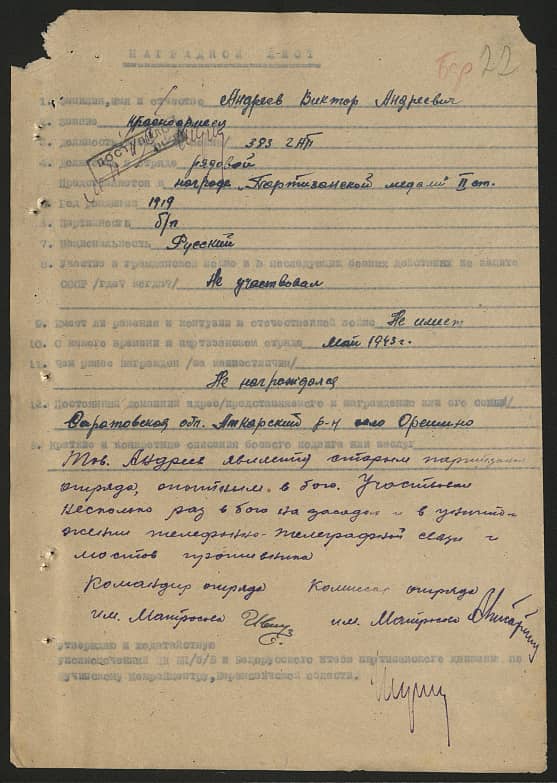 НАГРАДНОЙ ЛИСТ
22
1. Фамилия, имя и отчество Андреев Виктор Андреевич
2. Звание Красноармеец
3. Должность 383 гАП
4. Должность в отряде рядовой
Представляется к награде „Партизанской медали" II ст.
5. Год рождения 1919
6. Партийность б/п
7. Национальность Русский
8. Участие в гражданской войне и в последующих боевых действиях по защите
СССР /где и когда/ Не участвовал
9. Имеет ли ранения и контузии в отечественной войне Не имеет
10. С какого времени в партизанском отряде Май 1943 г.
11. Чем ранее награжден /за какие отличия/
Не награждался
12. Постоянный домашний адрес/представляемого к награждению или его семьи/
Саратовская обл. Аткарский р-н село Орешино
Краткое и конкретное описание боевого подвига или заслуг
Тов. Андреев является старым партизаном
отряда, опытным в бою. Участвовал
несколько раз в бою на засадах и в уничто-
жении телефонно-телеграфной связи и
мостов противника
Командир отряда Комиссар отряда
им. Матросова им. Матросова
Утверждаю и ходатайствую
Уполномоченный ЦК КП/б/Б и Белорусского штаба партизанского движения по
Барановичской области.